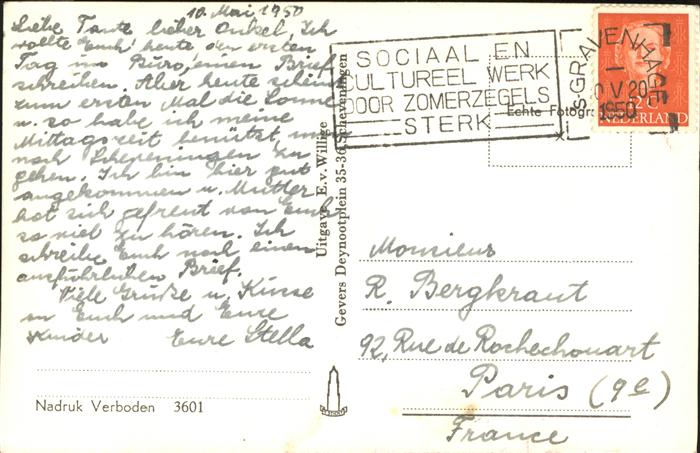 10. Mai 1950
Liebe Tante lieber Onkel, Ich
wollte Euch heute den ersten
Tag im Büro, einen Brief
schreiben. Aber heute schien
zum ersten Mal die Sonne
u. so habe ich meine
Mittagszeit benützt, um
nach Schepeningen zu
gehen. Ich bin hier gut
angekommen u. Mutter
hat sich gefreut von Euch
so viel zu hören. Ich
schreibe Euch noch einen
ausführlichen Brief.
Viele Grüße u. Küsse
an Euch und Eure
Kinder Eure Stella
Nadruk Verboden 3601
Uitgave E. v. Willige
Gevers Deynootplein 35-36 Scheveningen
SOCIAAL EN
CULTUREEL WERK
DOOR ZOMERZEGELS
STERK
'S GRAVENHAGE
1950
NEDERLAND
Echte Fotogr
Monsieur
R. Bergkraut
92, Rue de Rochechouart
Paris (9e)
France